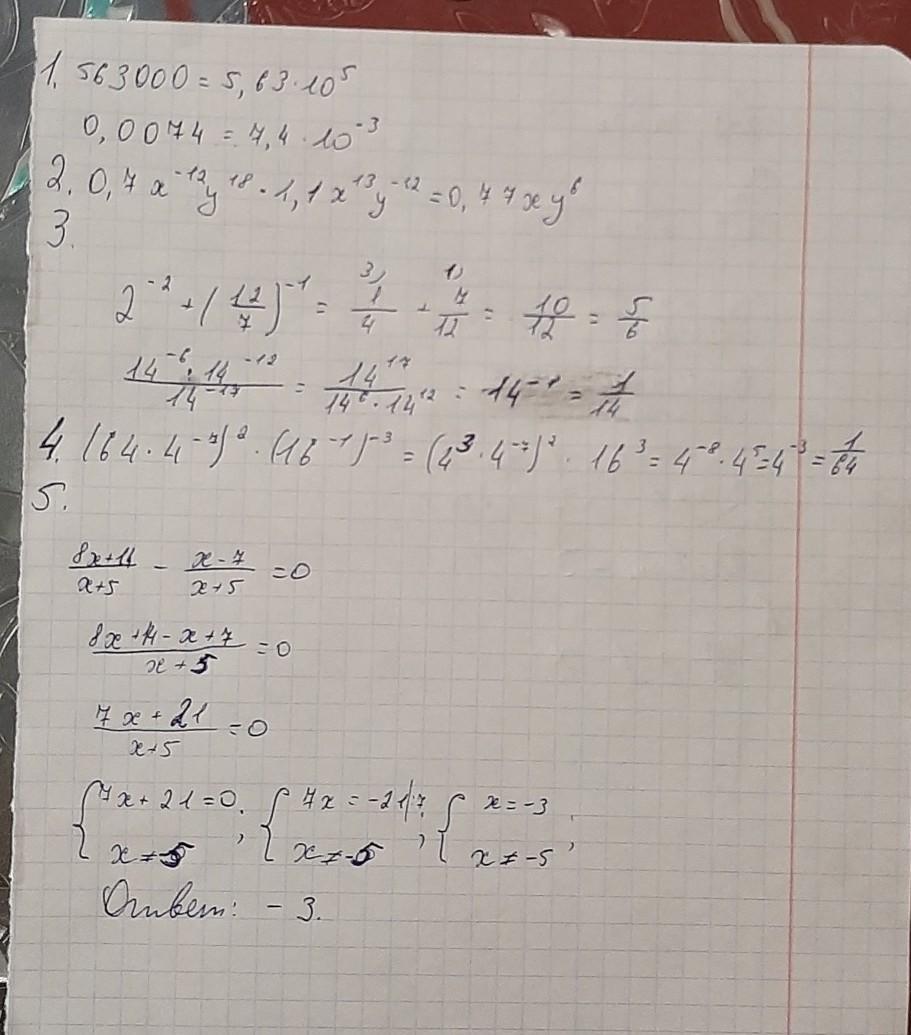 1. 563000 = 5,63·10⁵
0,0074 = 7,4·10⁻³
2. 0,7x⁻¹²y¹⁸·1,1x¹³y⁻¹² = 0,77xy⁶
3.
2⁻² + (12/7)⁻¹ = ³⁾1/4 + ¹⁾7/12 = 10/12 = 5/6
14⁻⁶·14⁻¹²/14⁻¹⁷ = 14¹⁷/14⁶·14¹² = 14⁻¹ = 1/14
4. (64·4⁻⁷)²·(16⁻¹)⁻³ = (4³·4⁻⁷)²·16³ = 4⁻⁸·4⁵ = 4⁻³ = 1/64
5.
8x+14/x+5 - x-7/x+5 = 0
8x+14-x+7/x+5 = 0
7x+21/x+5 = 0
{7x+21=0; x≠-5, {7x=-21|:7 x≠-5, {x=-3 x≠-5,
Ответ: -3.